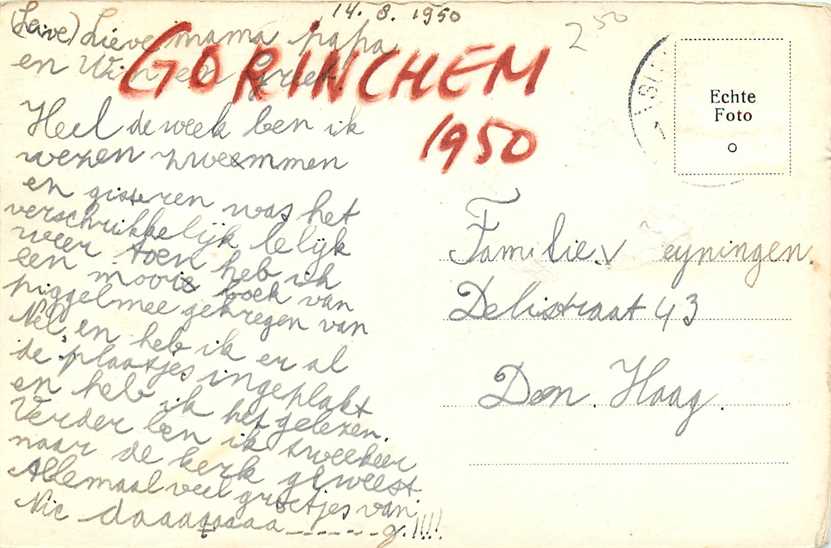 14.8.1950
(Leive) Lieve mama papa
en Wim en Greet
Heel de week ben ik
wezen zweemmen
en gisteren was het
verschrikkelijk lelijk
weer toen heb ik
een moois boek van
piggelmee gekregen van
Nel, en heb ik er al
de plaatjes ingeplakt
en heb ik het gelezen.
Verder ben ik tweekeer
naar de kerk geweest
Allemaal veel groetjes van
Nic daaataaaa ------- g!!!!
GORINCHEM
1950
2 50
Echte
Foto
Familie v eyningen.
Delistraat 43
Den Haag.